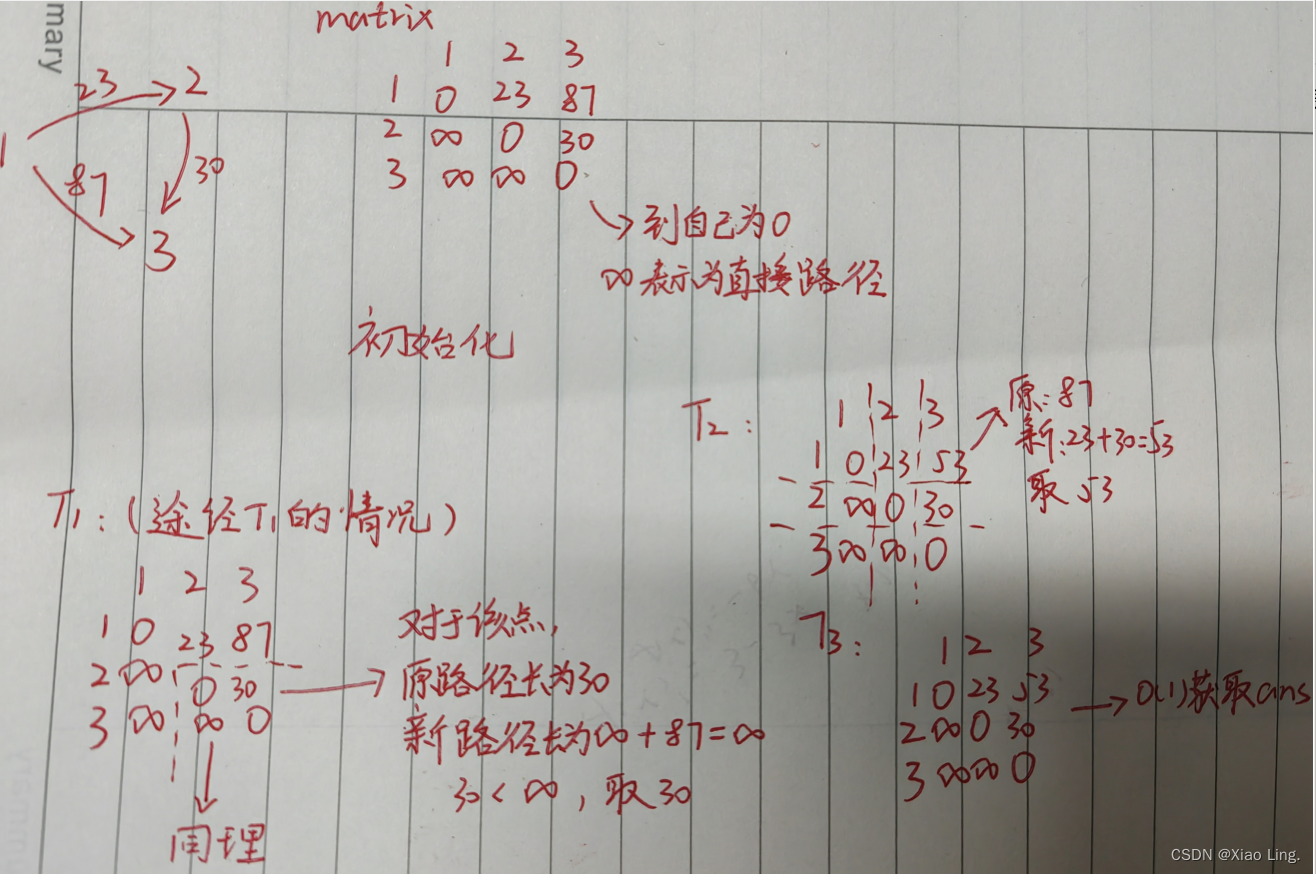 mary
matrix
1 2 3
1 0 23 87
2 ∞ 0 30
3 ∞ ∞ 0
23 2
1
87 30
3
到自己为0
∞表示为直接路径
初始化
T2:
1 2 3
1 0 23 53
2 ∞ 0 30
3 ∞ ∞ 0
原:87
新:23+30=53
取 53
T1:(途经T1的情况)
1 2 3
1 0 23 87
2 ∞ 0 30
3 ∞ ∞ 0
同理
对于该点,
原路径长为30
新路径长为∞+87=∞
30<∞,取30
T3:
1 2 3
1 0 23 53
2 ∞ 0 30
3 ∞ ∞ 0
O(1)获取ans
CSDN @Xiao Ling.